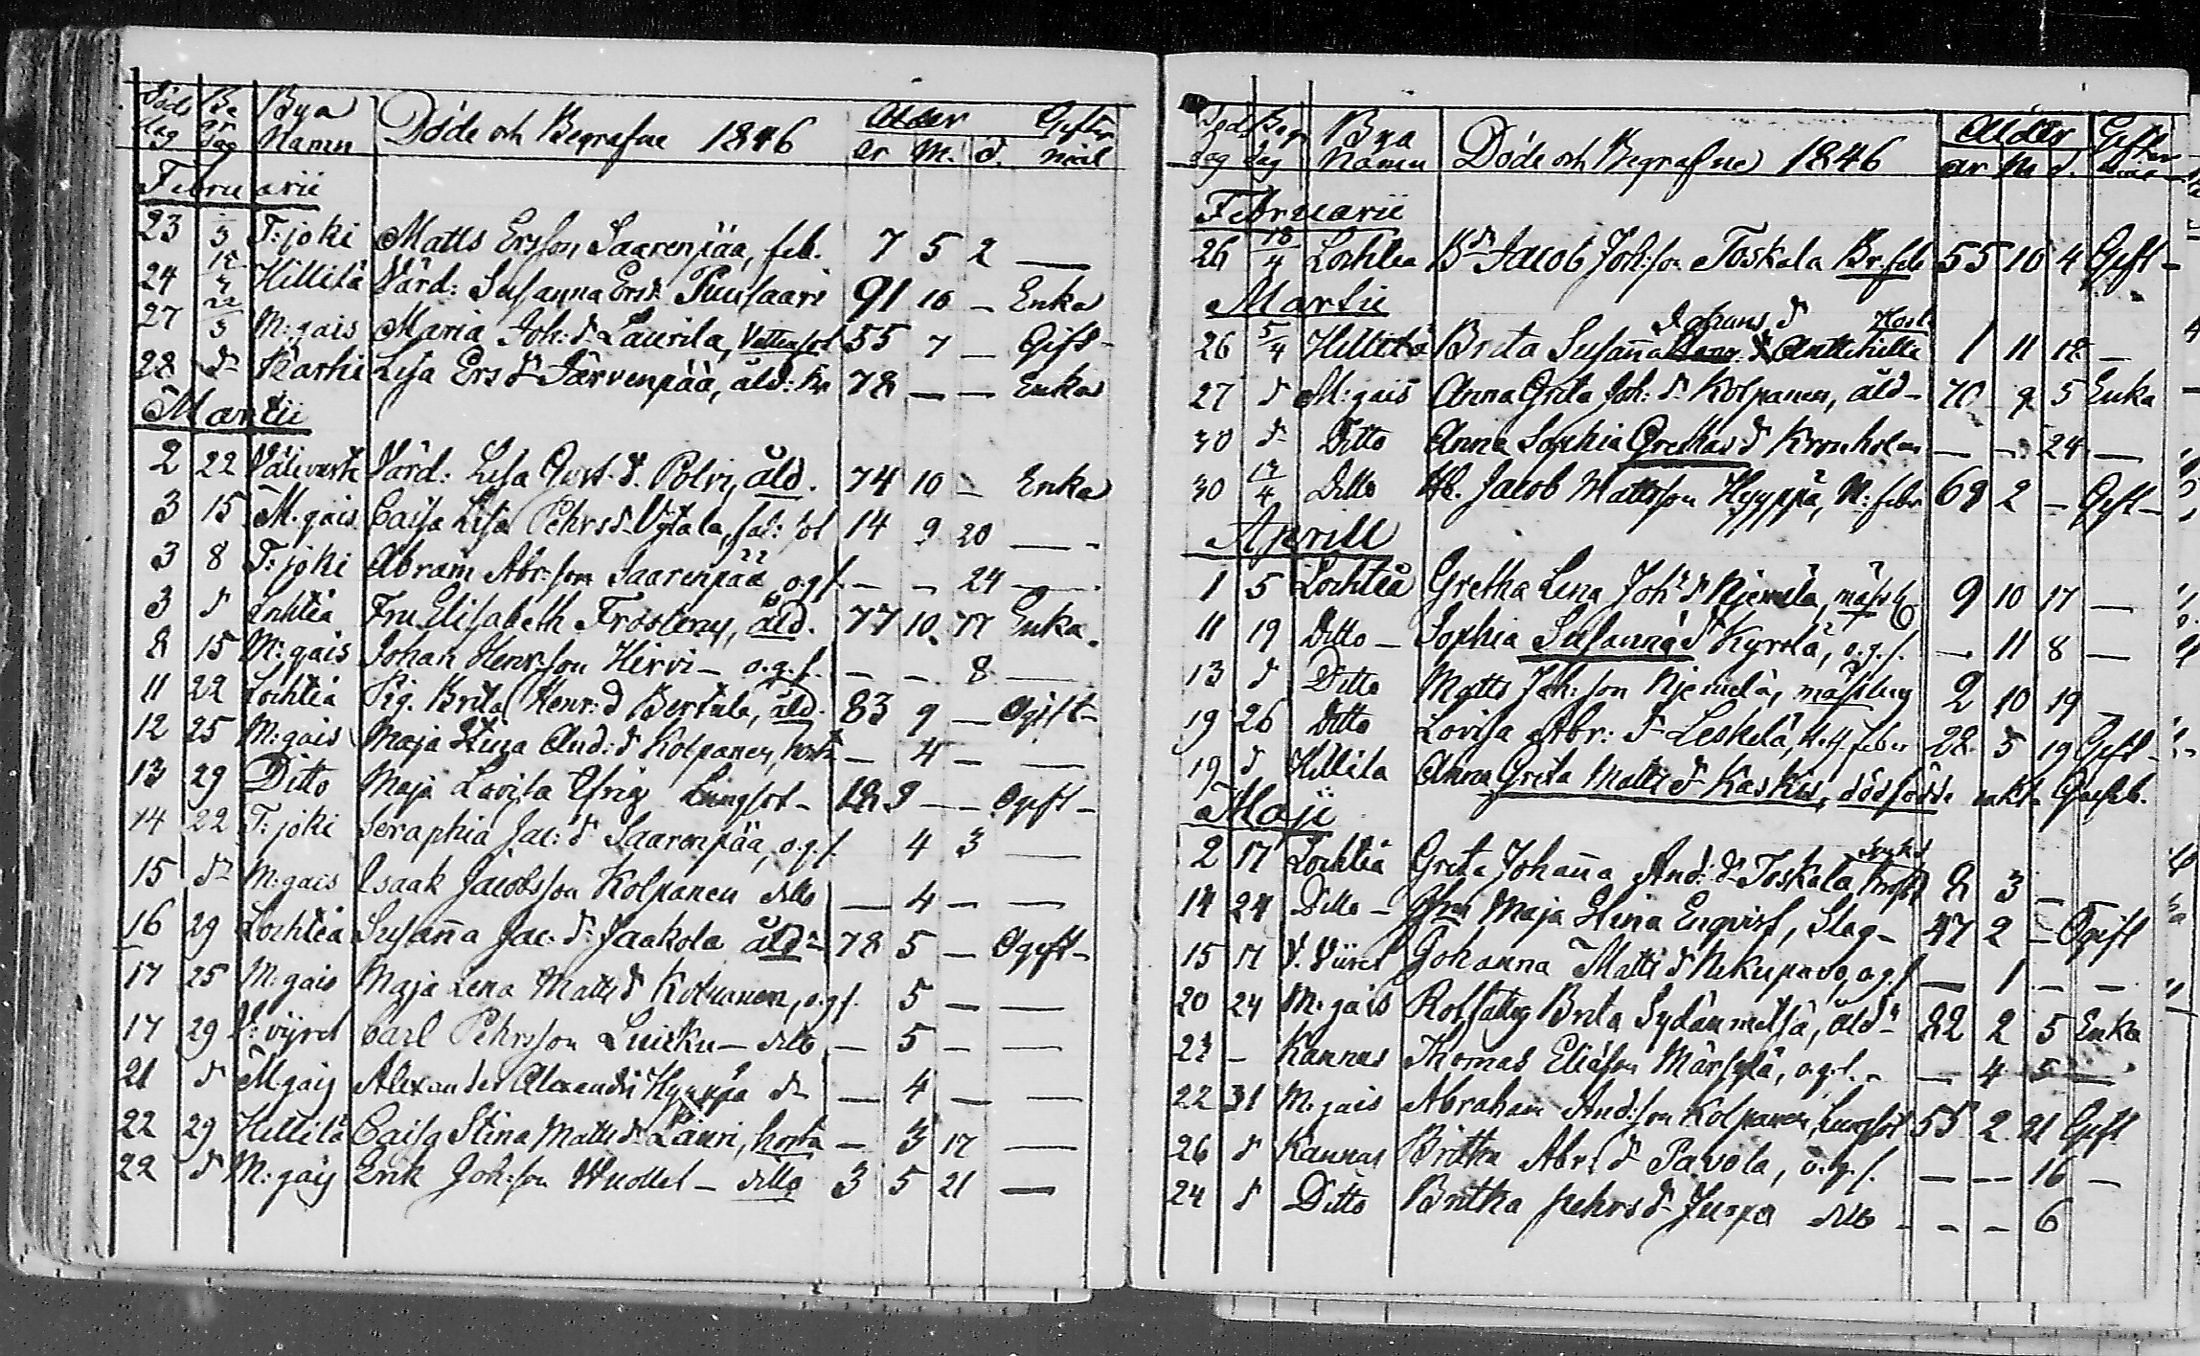 Död dag Be gr dag Bya Namen Döde och Begrafne 1846 Ålder år M. d. Gifter mål
Februarii
23 T:joki Matts Ersson Saarenpää, feb. 7 5 2 —
24 Hillilä Värd: Susanna Ersd. Puusaari 91 10 – Enka
27 22/3 M:gais Maria Joh: d. Laurila, Vattensot 55 7 – Gift
28 d:o Kärhi Lisa Ers d:r Järvenpää, åld: 78 — — Enka
Martii
2 22 Välivesi Värd: Lisa Gust. d. Polvi, åld. 74 10 – Enka
3 15 M:gais Caisa Lisa Pehrs d. Wytala, 14 9 20 —
3 8 T:joki Abram Abr:son Saarenpää o.g.f. — – 24 —
3 d Lochteå Fru Elisabeth Frosterus, åld. 77 10 Enka
8 15 M:gais Johan Henr:son Hirvi – o.g.f. – – 8 —
11 22 Lochteå Pig. Brita Henr: d Bertula, åld. 83 9 – Ogift
12 25 M:gais Maja Stina And: d Kolpanen, hosta – 4 – —
13 29 Ditto Maja Lovisa Lungsot – Ogift
14 22 T:joki Seraphia Jac: d Saarenpää, o.g.f. 4 3 —
15 d:o M:gais Isaak Jacobsson Kolpanen ditto — 4 – —
16 29 Lochteå Susanna Jac. d:r Jaakola åld:n 78 5 – Ogift
17 25 M:gais Maja Lena Matts d Kotkanen, o.g.f. 5 — —
17 29 V:vijret Carl Pehrsson Luisku – ditto — 5 – —
21 d M.gais Alexander Alexandri Hyyppä d:o — 4 – —
22 29 Hillilä Caisa Stina Matts d:r Lauri, hosta – 3 17 —
22 d M:gais Erik Joh:son Wuollet – ditto 3 5 21 —
Död dag Begr dag Bya Namen Döde och Begrafne 1846 Ålder år M d. Gifter mål
Februarii
26 18/4 Lochteå Bd Jacob Joh:son Toskala Br.feb 55 10 4 Gift
Martii
Johans d Host
26 5/4 Hillilä Brita Susanna Anttihilli 1 11 18 –
27 d M:gais Anna Grita Joh: d:r Kolpanen, åld – 70 9 5 Enka
30 d:o Ditto Anna Sophia Grethas d Kronholm — – 24 —
30 12/4 Ditto Jacob Mattsson Hyyppä, N:feber 69 2 – Gift
Aprill
1 5 Lochteå Gretha Lena Joh: d Njemelä, mässl 9 10 17 —
11 19 Ditto – Sophia Susannä d Kyrölä, o.g.f. — 11 8 —
13 d Ditto Matts Joh:son Njemelä, mässling 2 10 19 –
19 26 Ditto Lovisa Abr: d:r Leskelä, N.feber 28 5 19 Gift
19 d Hillilä Anna Greta Matts d:r Kaskis, dödfödt
Maji
2 17 Lochteå Greta Johanna And: d:r Toskala 2 3 –
14 24 Ditto – Maja Stina Enqvist, Slag – 47 2 – Ogift
15 17 V. Viiret Johanna Matts d Nikupavo, o.g.f. — 1 – –
20 24 M:gais Rotfattig Brita Sydänmetsä, åld:n 82 2 5 Enka
22 – Kannus Thomas Eliasson Märsylä, o.g.f. – — 4 5 —
22 31 M:gais Abraham And:son Kolpanen, Lungsot 55 2 21 Gift
26 d Kannus Britha Abr: d Pavola, o.g.f. — — 16 –
24 d Ditto Britha Pehrs d:r Juopa ditto – – – 6